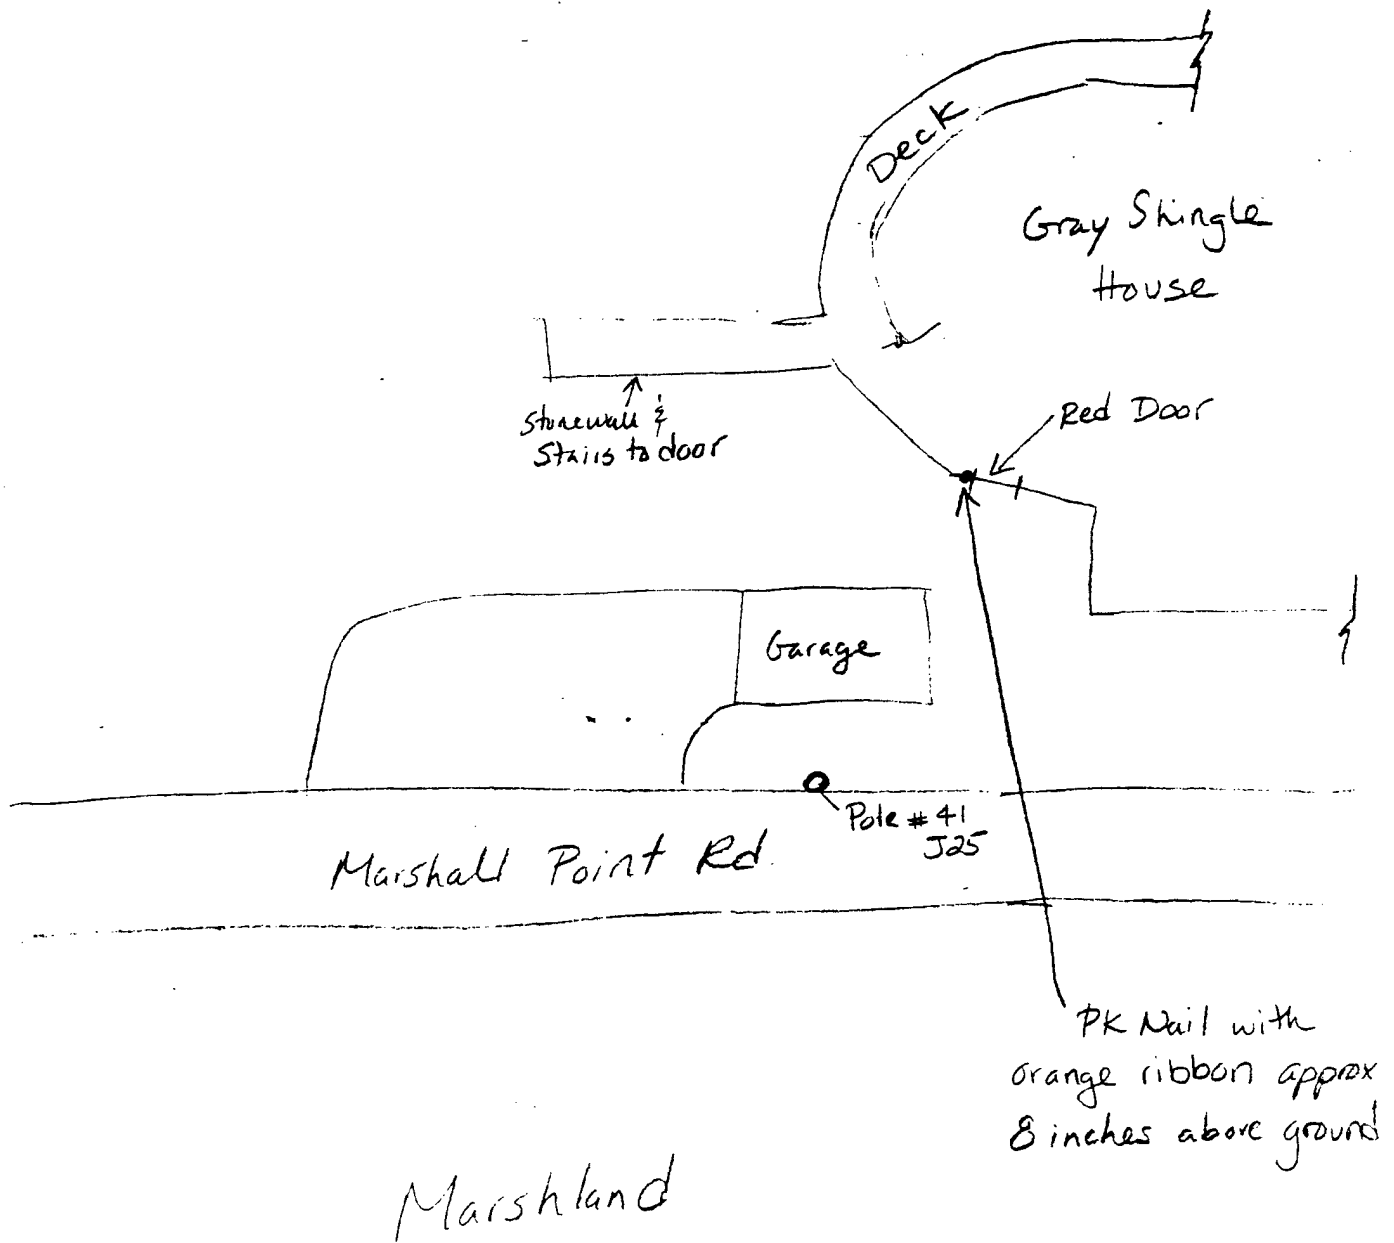 Deck
Gray Shingle
House
Red Door
Stonewall &
Stairs to door
Garage
Pole #41
J25
Marshall Point Rd.
PK Nail with
orange ribbon approx
8 inches above ground
Marshland